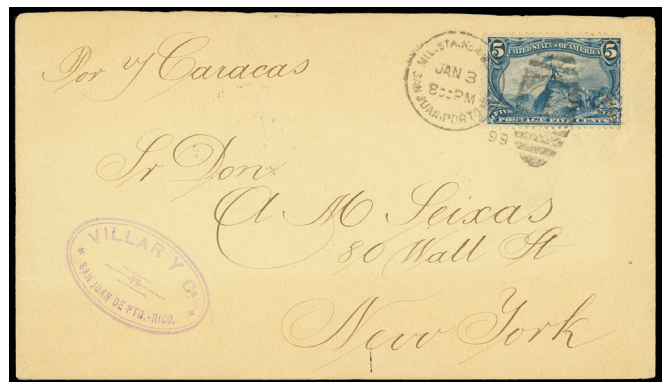 Por V Caracas
MIL. STA. No. 4
JAN 3
8 PM
SAN JUAN, PORTO
99
5 UNITED STATES OF AMERICA 5
POSTAGE FIVE CENTS
Sr Don
A M Seixas
80 Wall St
New York
VILLAR Y Co.
SAN JUAN DE PTO.-RICO.